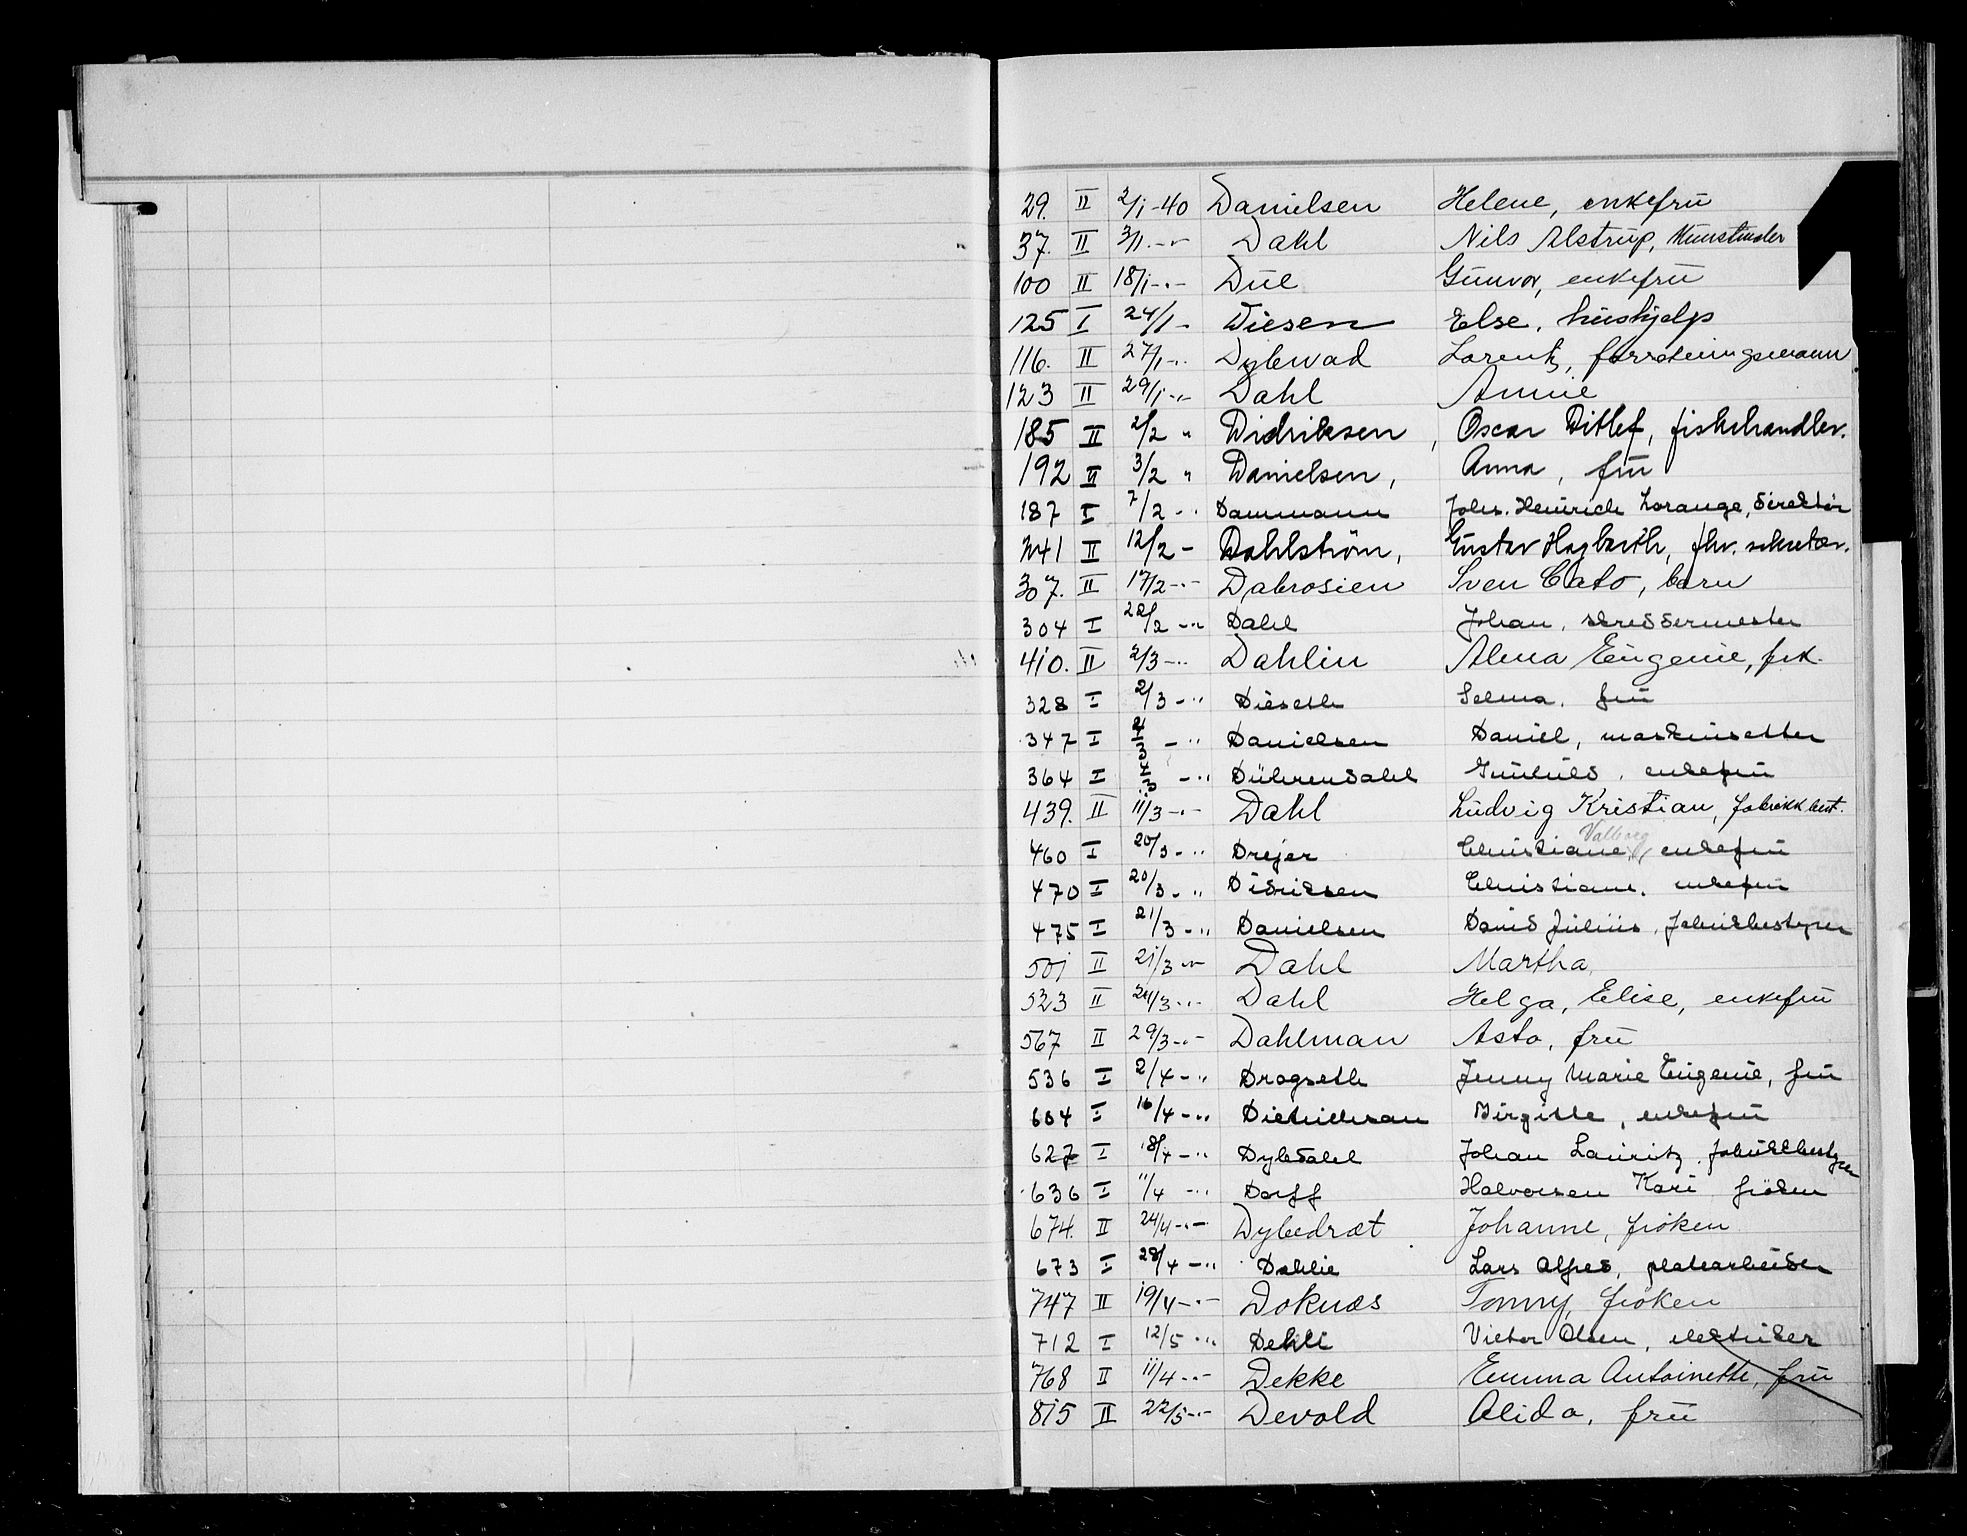 29. II 2/1-40 Danielsen Helene, enkefrü
37. II 3/1.-"- Dahl Nils Alstrup, Kunstmaler
100 II 18/1-"- Düe Gunvor, enkefrü
125 I 24/1- Diesen Else, hüshjelp
116. II 27/1-" Dybwad Lorentz, forretningsmann
123 II 29/1-"- Dahl Annie
185 II 2/2 " Didriksen, Oscar Ditlef, fiskehandler.
192 II 3/2 " Danielsen, Anna, frü
187 I 7/2 -" Dammann Johs. Heinrich Lorange, direktør
241 II 12/2 - Dahlstrøm, Gustav Hagbarth, fhv. sekretær.
307. II 17/2-"- Dabrosien Sven Cato, barn
304 I 22/2 -" Dahl Johan, skreddermester
410. II 2/3-" Dahlin Alma Eugenie, frk.
328 I 2/3 -" Dieseth Selma, frü
347 I -" Danielsen Daniel, maskinsetter
364 I -" Dührendahl Gunhild, enkefrü
439. II 11/3-"- Dahl Ludvig Kristian, fabrikkbest.
460 I 20/3 -" Drejer Christiane, Valborg enkefrü
470 I 20/3 -" Didriksen Christiane, enkefrü
475 I 21/3 -" Danielsen David Julius, fabrikkbestyrer
501 II 21/3 -"- Dahl Martha,
523 II 24/3-"- Dahl Helga, Elise, enkefrü
567 II 29/3-"- Dahlman Asta, frü
536 I 2/4 -" Dragseth Jenny Marie Eugenie, frü
604 I 16/4 -" Diethilesan Birgitte, enkefrü
627 I 18/4 -" Dybdahl Johan Lauritz, fabrikkbestyrer
636 I 11/4 -" Dorff Halvorsen Kari frøken
674. II 24/4-"- Dybedræt Johanne, frøken
673 I 28/4 -" Dahlie Lars Alfred, platearbeider
747 II 19/4-"- Doknæs Tonny, frøken
712 I 12/5 -" Dehli Victor Olsen, elektriker
768 II 11/4-"- Dekke Emma Antoinette, frü
815 II 22/5-"- Devold Alida, frü